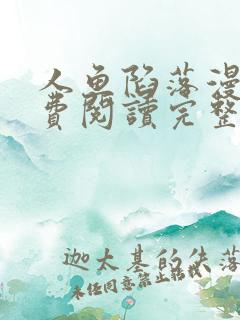 人鱼陷落漫
费阅读完整
迦太基的失落
未经同意禁止转载